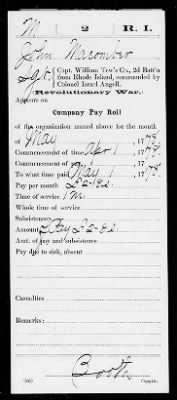 M | 2 | R. I.
John Macomber
Sgt. Capt. William Tew's Co., 2d Batt'n
from Rhode Island, commanded by
Colonel Israel Angell.
Revolutionary War.
Appears on
Company Pay Roll
of the organization named above for the month
of May, 1778.
Commencement of time Apr 1, 1778.
To what time paid May 1, 1778.
Pay per month
Time of service 1 m
Whole time of service
Subsistence
Amount
Amt. of pay and subsistence
Pay due to sick, absent
Casualties
Remarks:
Booth
Copyist.